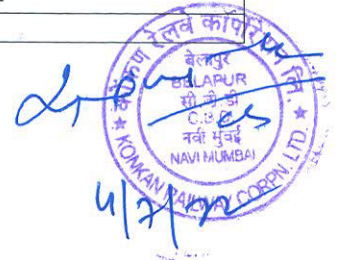 कोंकण रेलवे कॉर्पोरेशन लि.
बेलापुर
BELAPUR
सी.बी.डी
C.B.D
नवी मुंबई
NAVI MUMBAI
★ KONKAN RAILWAY CORPN. LTD. ★
4/7/22